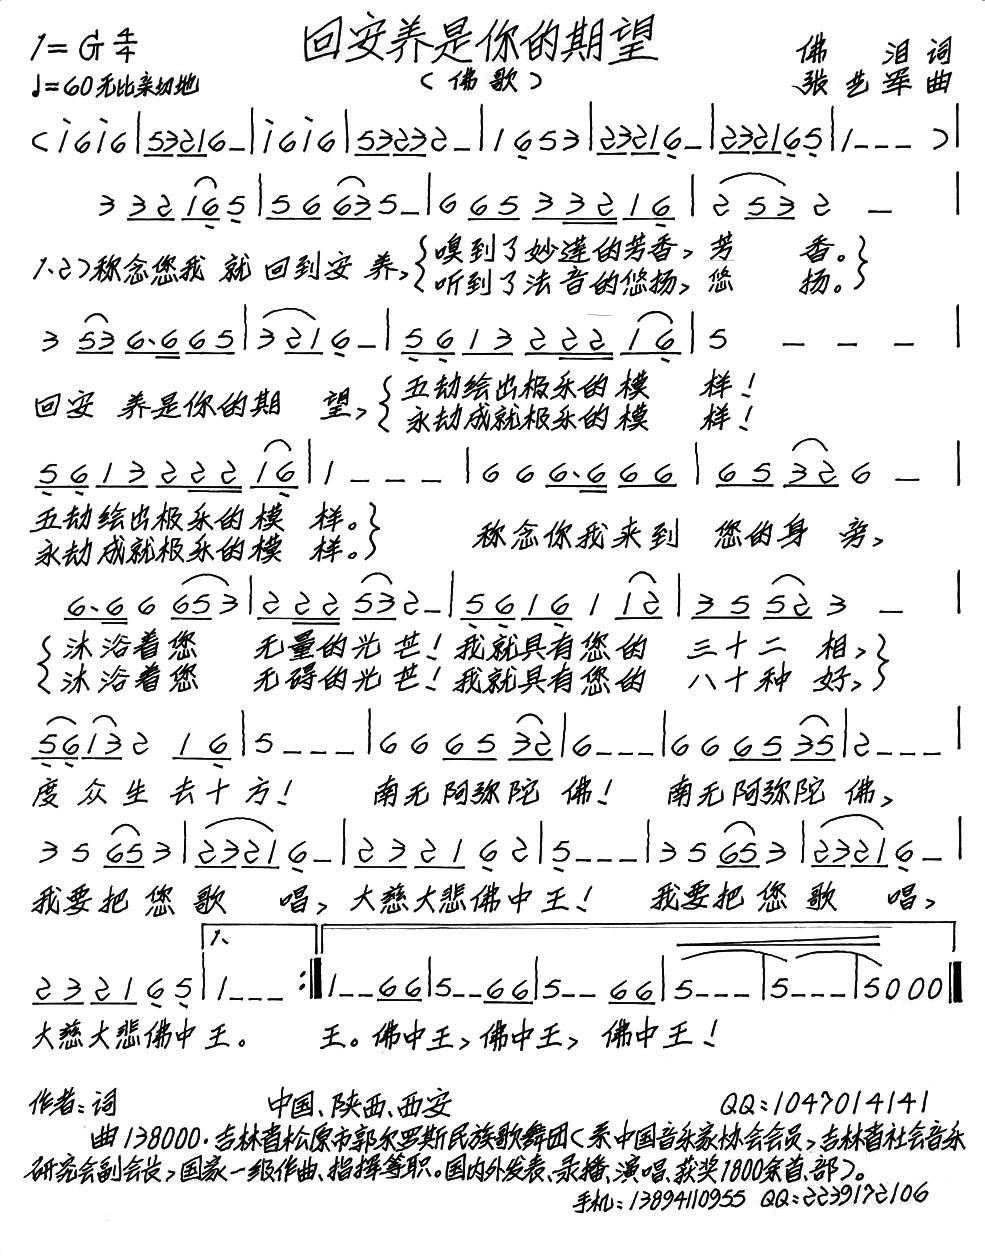 回安养是你的期望
1=G 4/4
佛 泪 词
♩=60 无比亲切地
(佛歌)
张艺军 曲
(i6i6|53216-|i6i6|53232-|1653|23216-|232165|1---)|
3 32 165|56 635-|6 65 332 16|2 532 -|
1.2)称念您我 就 回到安 养,{嗅到了妙莲的芳香,芳 香。}
听到了法音的悠扬,悠 扬。
3 53 6·6 65|3 216-|56 13 222 16|5 - - -|
回安 养是你的期 望,{五劫绘出极乐的模 样!
永劫成就极乐的模 样!
56 13 222 16|1---|66 6·6 66|65 326 -|
五劫绘出极乐的模 样。}
永劫成就极乐的模 样。
称念你我来到 您的身 旁,
6·6 6 653|2 22 532-|5616 1 12|35 523 -|
{沐浴着您 无量的光芒!我就具有您的 三十二 相,}
沐浴着您 无碍的光芒!我就具有您的 八十种 好,
56132 16|5---|66 65 32|6---|66 65 35|2---|
度众生 去十方! 南无阿弥陀 佛! 南无阿弥陀 佛,
35 653|23216-|23 21 62|5---|35 653|23216-|
我要把您歌 唱,大慈大悲佛中王! 我要把您歌 唱,
1、
23 21 65|1---:‖1--66|5--66|5-- 66|5---|5---|5000‖
大慈大悲佛中王。 王。佛中王,佛中王, 佛中王!
作者:词 中国、陕西、西安 QQ:1047014141
曲 138000·吉林省松原市郭尔罗斯民族歌舞团(系中国音乐家协会会员,吉林省社会音乐
研究会副会长,国家一级作曲、指挥等职。国内外发表、录播、演唱、获奖1800余首、部)。
手机:13894110955 QQ:2239172106